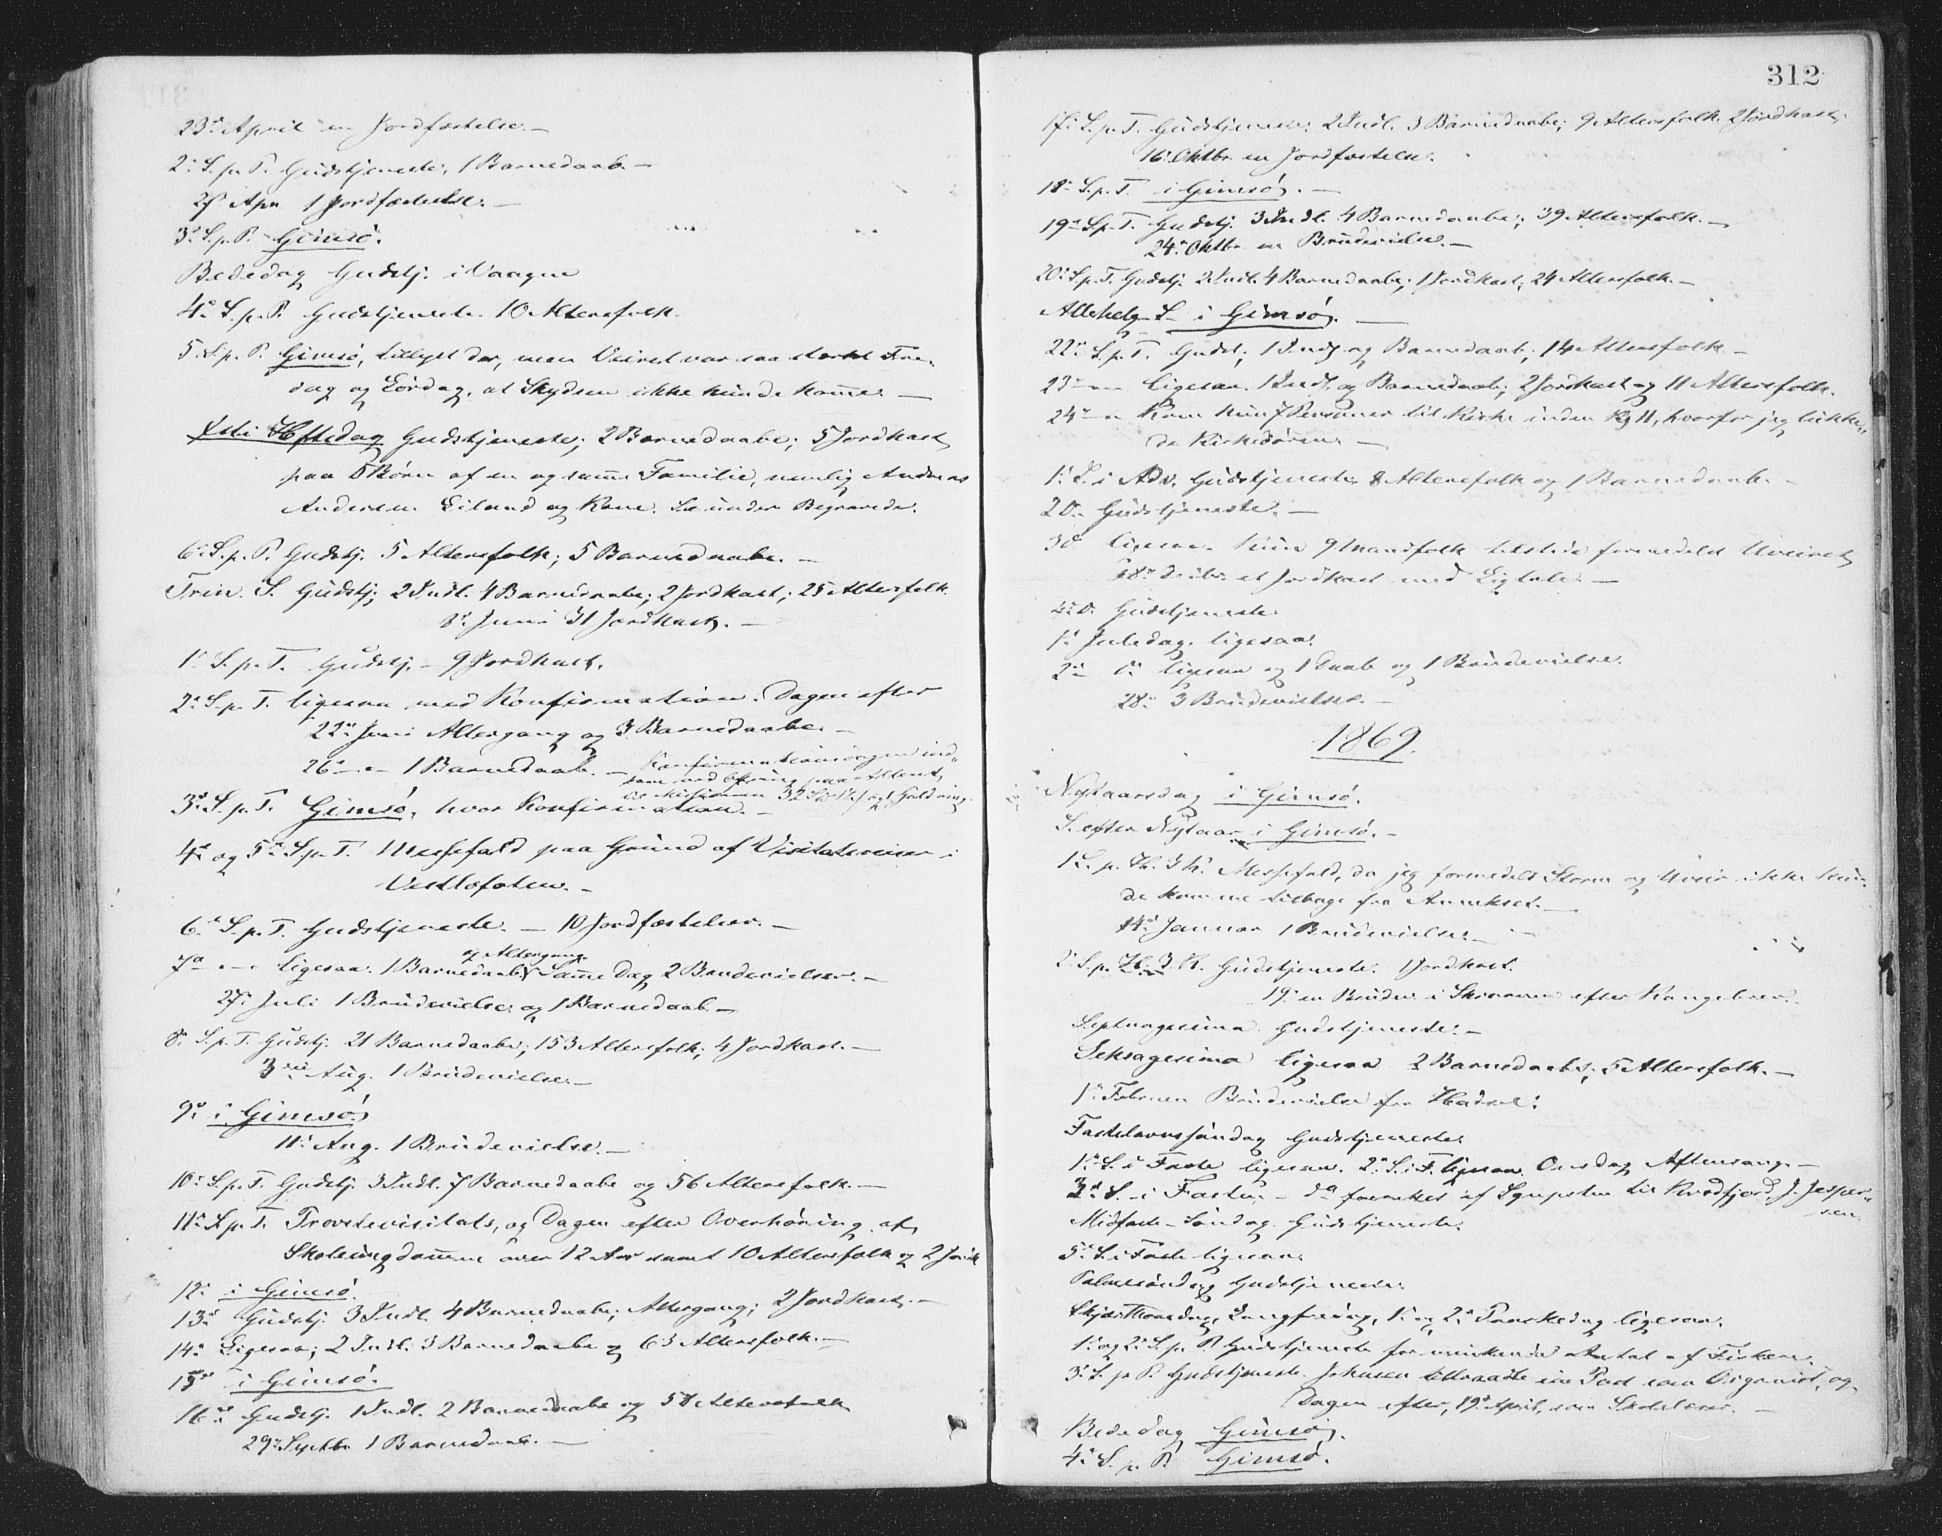 23de April en Jordfæstelse. —
2. S. p. P. Gudstjeneste; 1 Barnedaab. —
27 Apr. 1 Jordfæstelse. —
3. S. p. P. Gimsö.
Bededag Gudstj. i Vaagen
4. S. p. P. Gudstjeneste. 10 Altersfolk.
5. S. p. P. Gimsö, tillyst der, men Veiret var saa stærkt Fre-
dag og Lördag, at Skydsen ikke kunde komme. —
Kristi Hftsdag Gudstjeneste; 2 Barnedaabe; 5 Jordkast
paa 5 Börn af en og samme Familie, nemlig Andreas
Andersen Eiland og Kone. Se under Begravede.
6. S. p. P. Gudstj. 5 Altersfolk; 5 Barnedaabe. —
Trin. S. Gudstj; 2 Indl. 4 Barnedaabe; 2 Jordkast; 25 Altersfolk
8. Juni 31 Jordkast. —
1. S. p. T. Gudstj. — 9 Jordkast.
2. S. p. T. ligesaa med Konfirmation. Dagen efter
22de Juni Altergang og 3 Barnedaabe. —
26 — 1 Barnedaab. —
3. S. p. T. Gimsö, hvor Konfirmation. —
4. og 5. S. p. T. Messefald paa Grund af Visitatsreiser i
Vestlofoten. —
6. S. p. T. Gudstjeneste. — 10 Jordfæstelser. —
og Altergang
7. — ligesaa. 1 Barnedaab. Samme Dag 2 Brudevielser. —
27. Juli 1 Brudevielse og 1 Barnedaab. —
8. S. p. T. Gudstj. 21 Barnedaabe; 153 Altersfolk; 4 Jordkast. —
3die Aug. 1 Brudevielse. —
9. i Gimsö.
11. Aug. 1 Brudevielse. —
10. S. p. T. Gudstj. 3 Indl. 7 Barnedaabe og 56 Altersfolk. —
11. S. p. T. Provstevisitats, og Dagen efter Overhöring af
Skoleungdommen over 12 Aar samt 10 Altersfolk og 2 Jordk
12. i Gimsö.
13. Gudstj. 3 Indl. 4 Barnedaabe; Altergang; 2 Jordkast. —
14. Ligesaa; 2 Indl. 3 Barnedaabe og 63 Altersfolk. —
15. i Gimsö.
16. Gudstj. 1 Indl. 2 Barnedaabe og 58 Altersfolk
29. Septbr 1 Barnedaab. —
312
17. S. p. T. Gudstjeneste; 2 Indl. 3 Barnedaabe; 9 Altersfolk 2 Jordkast.
16. Oktbr en Jordfæstelse.
18. S. p. T. i Gimsö. —
19. S. p. T. Gudstj. 3 Indl. 4 Barnedaabe; 39 Altersfolk. —
24. Oktbr en Brudevielse. —
20. S. p. T. Gudstj. 2 Indl. 4 Barnedaabe; 1 Jordkast; 24 Altersfolk. —
Allehelg. S. i Gimsö. —
22. S. p. T. Gudst; 1 Indl og Barnedaab; 14 Altersfolk —
23 — ligesaa. 1 Indl. og Barnedaab; 2 Jordkast og 11 Altersfolk.
24 — Kom kun 7 Personer til Kirke inden Kl 11, hvorfor jeg lukke-
de Kirkedören. —
1. S. i Adv. Gudstjeneste 8 Altersfolk og 1 Barnedaab. —
2 D. Gudstjeneste. —
3 D. ligesaa. Kun 9 Mandfolk tilstede formedelst Uveiret
18. Decbr. et Jordkast med Ligtale. —
4. D. Gudstjeneste
1. Juledag. ligesaa.
2. D. ligesaa og 1 Daab og 1 Brudevielse.
28. 3 Brudevielser. —
1869.
Nytaarsdag i Gimsö.
S. efter Nytaar i Gimsö. —
1. S. p. H. 3 K. Messefald, da jeg formedelst Storm og Uveir ikke kun-
de komme tilbage fra Annekset. —
14. Januar 1 Brudevielse. —
2. S. p. H. 3. K. Gudstjeneste. 1 Jordkast.
19. en Brudev. i efter Kongebrev.
Septuagesima Gudstjeneste. —
Seksagesima ligesaa 2 Barnedaabe; 5 Altersfolk. —
1. Februar Brudevielse fra Hadsel.
Fastelavnssöndag Gudstjeneste
1. S. i Faste ligesaa. 2. S. i F. ligesaa Onsdag Aftensang. —
3. S. i Faste. — forrettet af Sognepr. til Kvedfjord, J. Jesper-
sen.
Midfaste-Söndag. Gudstjeneste.
5. S. i Faste ligesaa.
Palmesöndag Gudstjeneste.
Skjærthorsdag, Langfredag, 1. og 2. Paaskedag ligesaa.
1. og 2. S. p. P. Gudstjeneste for minkende Antal af Fiskere.
3. S. p. P. Gudstjeneste. Johnsen tiltraadte sin Post som Organist, og
Dagen efter, 19. April, som Skolelærer. —
Bededag Gimsö.
4. S. p. P. Gimsö.